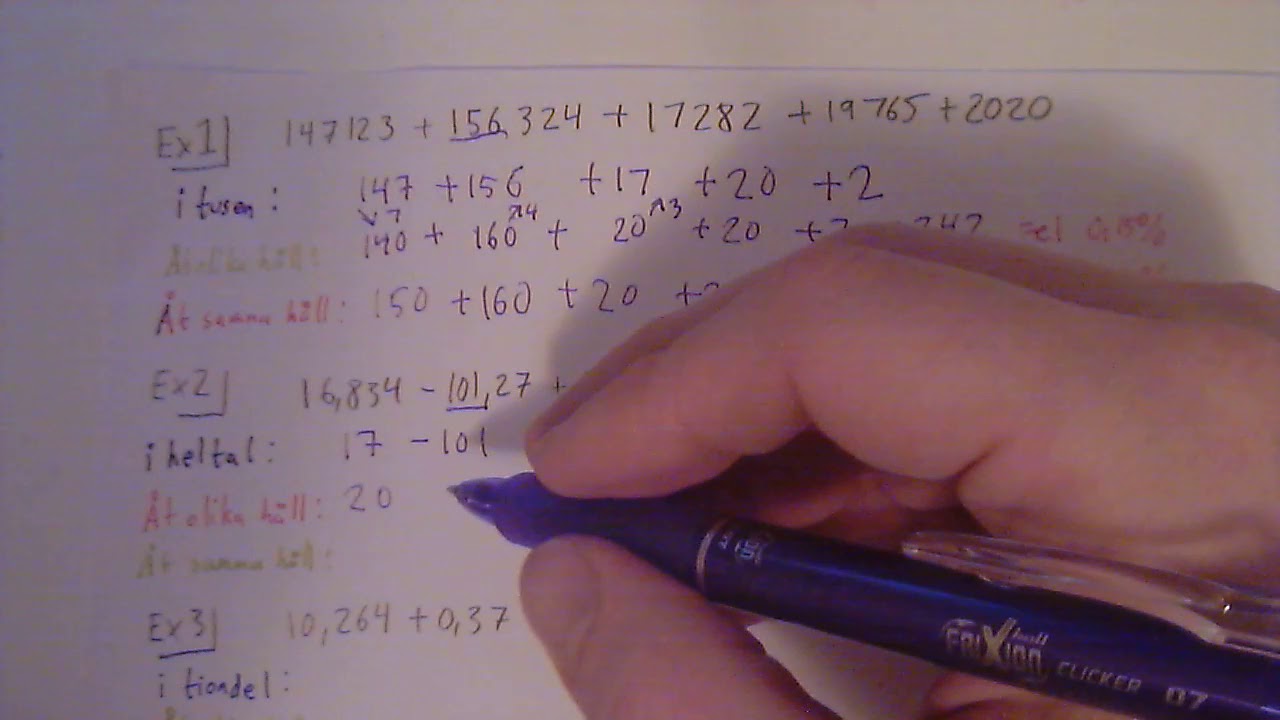 Ex1] 147123 + 156,324 + 17282 + 19765 + 2020
i tusen: 147 + 156 + 17 + 20 + 2
↘7 ↗4 ↗3
Åt olika håll: 140 + 160 + 20 + 20 + 342 =el 0,15%
Åt samma håll: 150 + 160 + 20 +
Ex2] 16,834 - 101,27 +
i heltal: 17 - 101
Åt olika håll: 20
Åt samma håll:
Ex3] 10,264 + 0,37
i tiondel:
FRIXION ball CLICKER 07